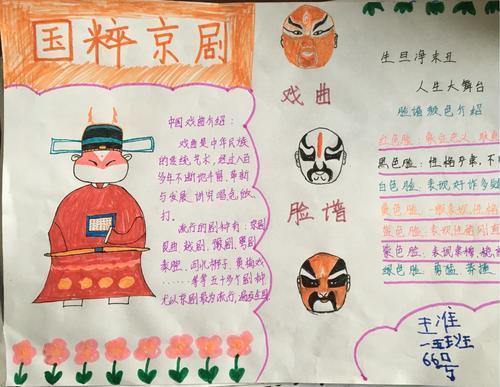 国粹京剧
中国戏曲介绍:
戏曲是中华民族
的传统艺术，经过八百
多年不断地丰富、革新
与发展，讲究唱念做
打。
流行的剧种有：京剧
昆曲 越剧、豫剧、粤剧
秦腔、河北梆子、黄梅戏
……等等五十多个剧种
尤以京剧最为流行，
戏曲
脸谱
生旦净末丑
人生大舞台
脸谱颜色介绍
红色脸：象征忠义、耿
黑色脸：性格严肃、不
白色脸：表现奸诈多疑
黄色脸：一般表现性格
色脸：表现性格刚直
紫色脸：表现肃穆、稳
绿色脸：勇猛、莽撞
一五班
66号